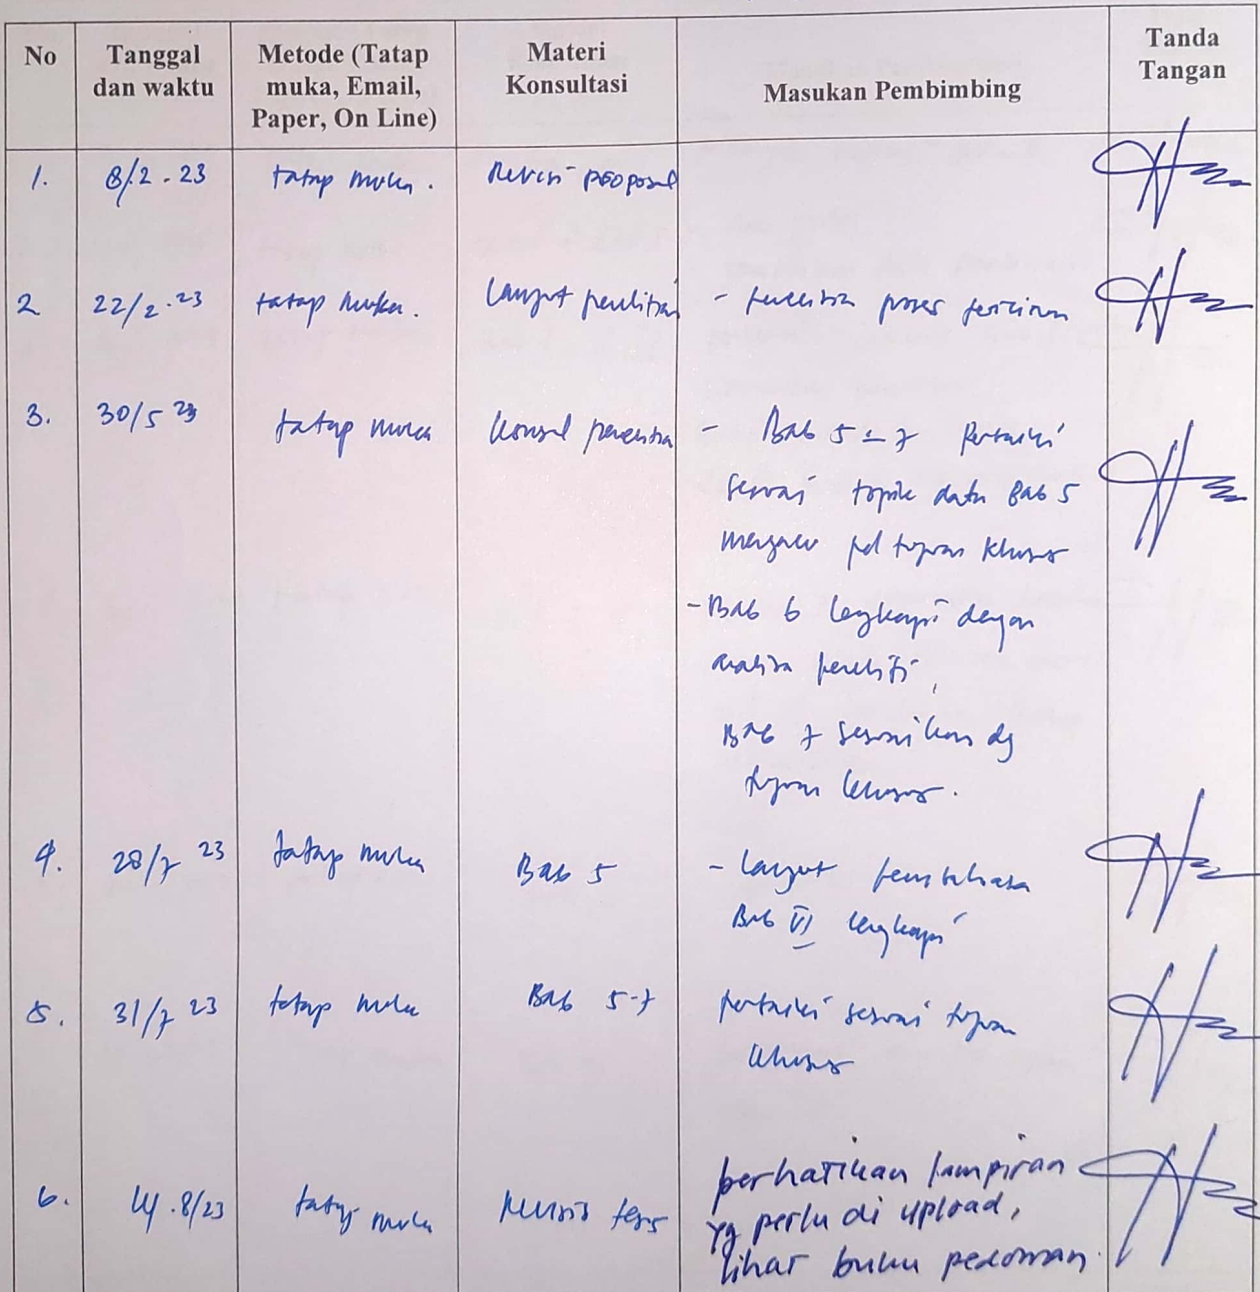 No
Tanggal
dan waktu
Metode (Tatap
muka, Email,
Paper, On Line)
Materi
Konsultasi
Masukan Pembimbing
Tanda
Tangan
1.
8/2 - 23
tatap muka.
Revisi proposal
2
22/2 - 23
tatap muka.
lanjut penelitian
- proses
3.
30/5 23
tatap muka
konsul
- Bab 5 - 7 Perbaiki
sesuai topik data Bab 5
mengacu pd tujuan khusus
- Bab 6 lengkapi dengan
analisa peneliti,
Bab 7 sesuaikan dg
tujuan khusus.
4.
28/7 23
tatap muka
Bab 5
- lanjut pembahasa
Bab VI lengkapi
5.
31/7 23
tatap muka
Bab 5-7
perbaiki sesuai tujuan
khusus
6.
8/23
tatap muka
tesis
perhatikan lampiran
yg perlu di upload,
lihat buku pedoman.